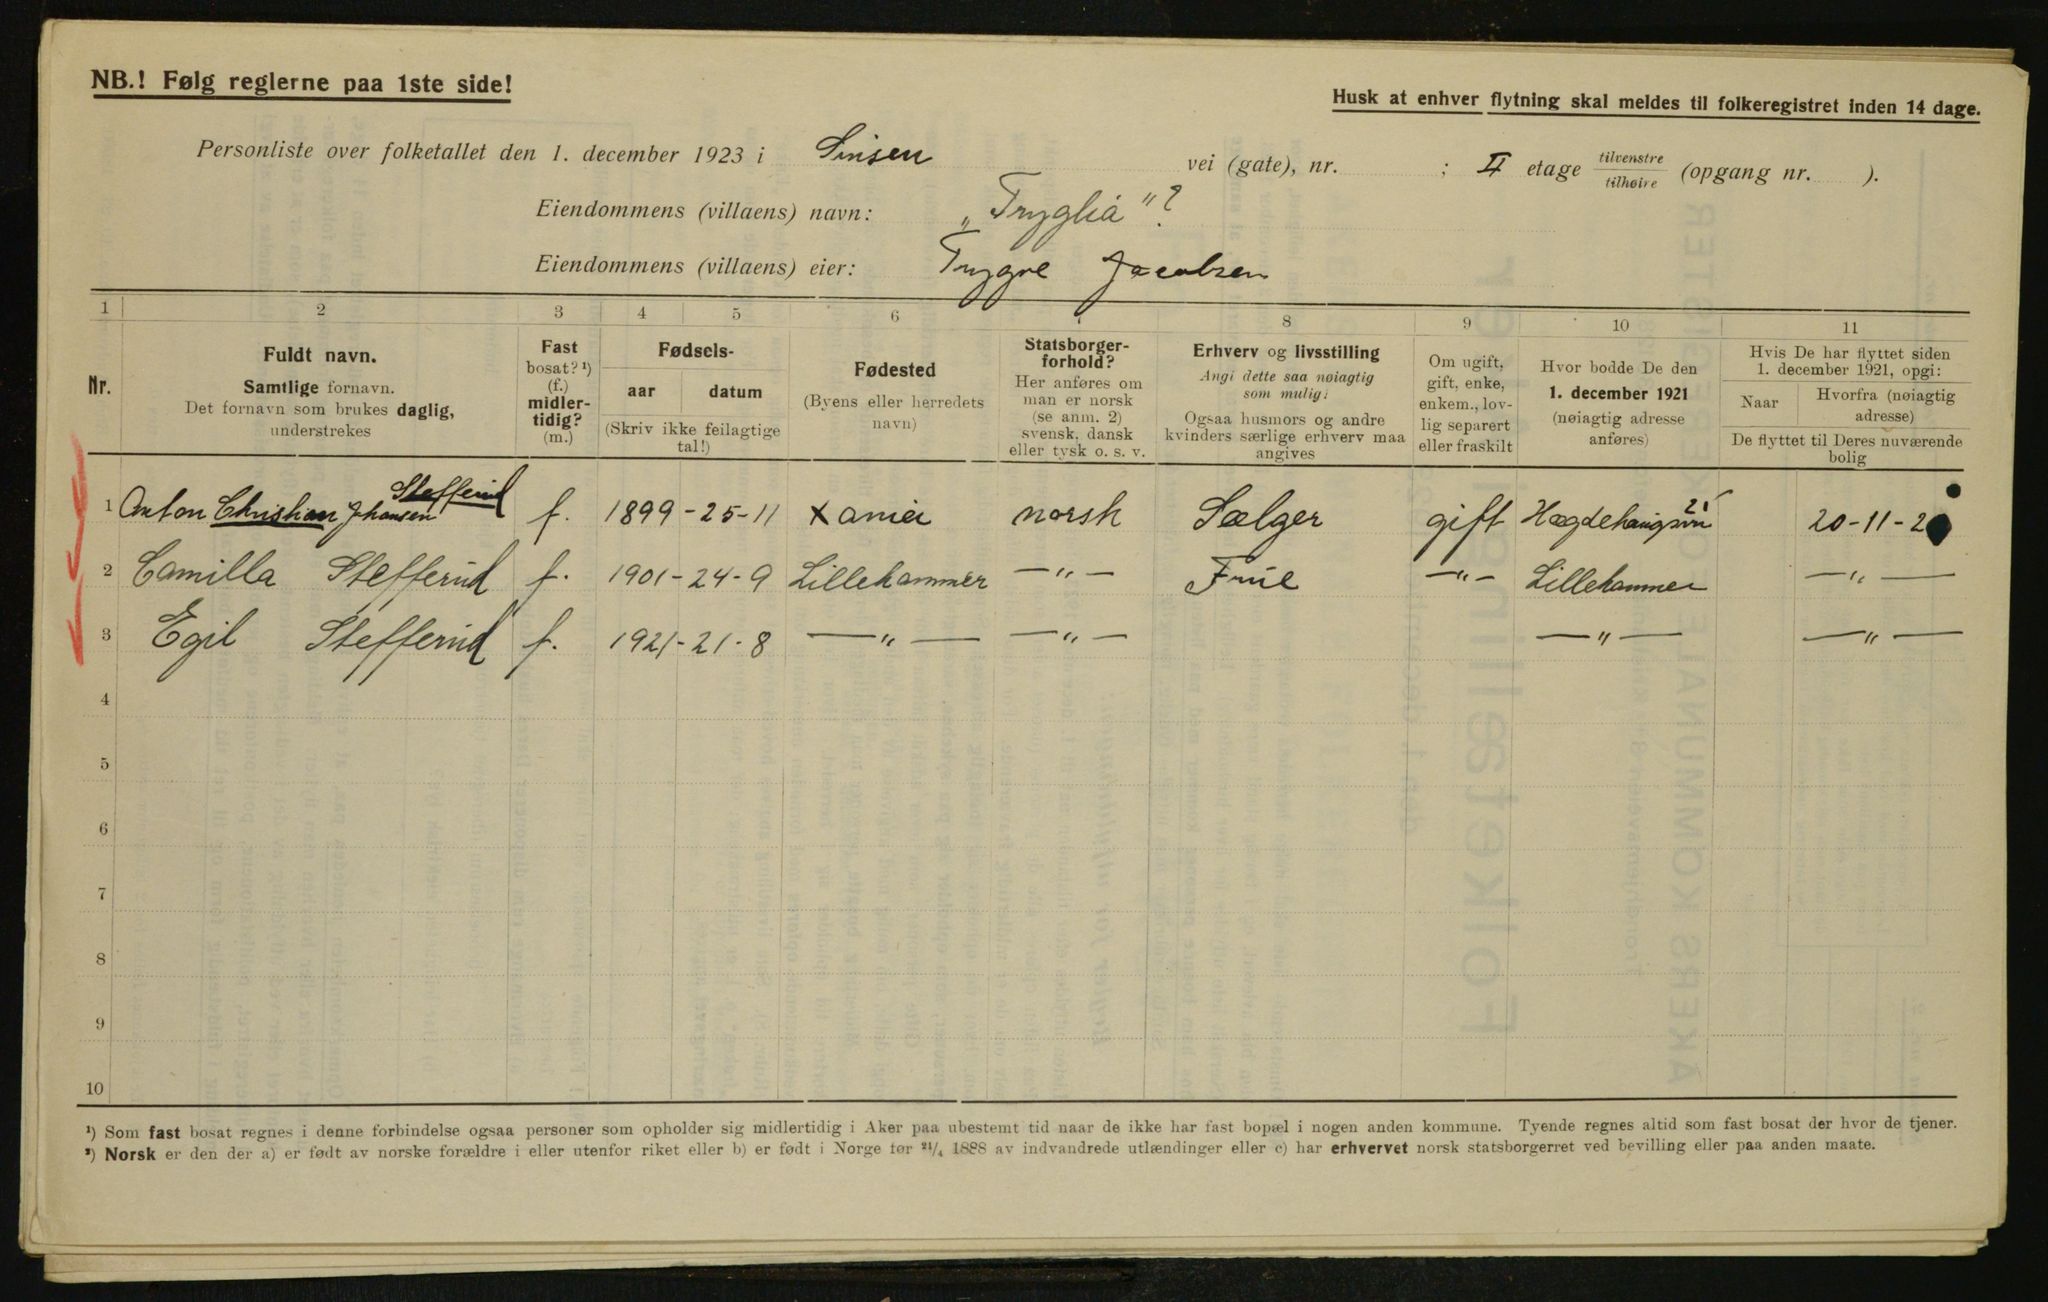 NB.! Følg reglerne paa 1ste side!
Husk at enhver flytning skal meldes til folkeregistret inden 14 dage.
Personliste over folketallet den 1. december 1923 i Sinsen vei (gate), nr. ; II etage tilvenstre tilhøire (opgang nr. ).
Eiendommens (villaens) navn: „Tryglia"?
Eiendommens (villaens) eier: Trygve Jacobsen
1 2 3 4 5 6 7 8 9 10 11
Nr.
Fuldt navn.
Samtlige fornavn.
Det fornavn som brukes daglig,
understrekes
Fast
bosat? ¹)
(f.)
midler-
tidig?
(m.)
Fødsels-
aar datum
(Skriv ikke feilagtige
tal!)
Fødested
(Byens eller herredets
navn)
Statsborger-
forhold?
Her anføres om
man er norsk
(se anm. 2)
svensk, dansk
eller tysk o. s. v.
Erhverv og livsstilling
Angi dette saa nøiagtig
som mulig:
Ogsaa husmors og andre
kvinders særlige erhverv maa
angives
Om ugift,
gift, enke,
enkem., lov-
lig separert
eller fraskilt
Hvor bodde De den
1. december 1921
(nøiagtig adresse
anføres)
Hvis De har flyttet siden
1. december 1921, opgi:
Naar
Hvorfra (nøiagtig
adresse)
De flyttet til Deres nuværende
bolig
Stefferud
1 Anton Christian Jhansen f. 1899 - 25 - 11 Xania norsk Sælger gift Hægdehaugsvn 21 20 - 11 - 2
2 Camilla Stefferud f. 1901 - 24 - 9 Lillehammer — „ — Frue — „ — Lillehammer — „ —
3 Egil Stefferud f. 1921 - 21 - 8 — „ — — „ — — „ — — „ —
4
5
6
7
8
9
10
¹) Som fast bosat regnes i denne forbindelse ogsaa personer som opholder sig midlertidig i Aker paa ubestemt tid naar de ikke har fast bopæl i nogen anden kommune. Tyende regnes altid som fast bosat der hvor de tjener.
²) Norsk er den der a) er født av norske forældre i eller utenfor riket eller b) er født i Norge før ²¹/₄ 1888 av indvandrede utlændinger eller c) har erhvervet norsk statsborgerret ved bevilling eller paa anden maate.